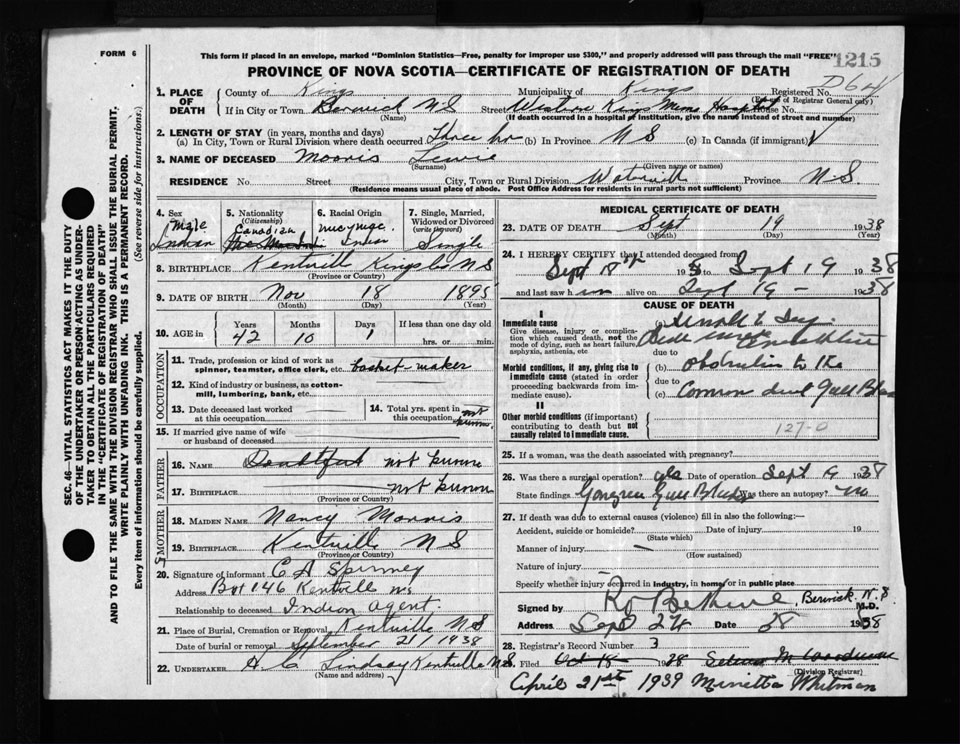 FORM 6
This form if placed in an envelope, marked "Dominion Statistics—Free, penalty for improper use $300," and properly addressed will pass through the mail "FREE"
1215
PROVINCE OF NOVA SCOTIA—CERTIFICATE OF REGISTRATION OF DEATH
SEC. 46—VITAL STATISTICS ACT MAKES IT THE DUTY
OF THE UNDERTAKER OR PERSON ACTING AS UNDER-
TAKER TO OBTAIN ALL THE PARTICULARS REQUIRED
IN THE "CERTIFICATE OF REGISTRATION OF DEATH"
AND TO FILE THE SAME WITH THE DIVISION REGISTRAR WHO SHALL ISSUE THE BURIAL PERMIT.
WRITE PLAINLY WITH UNFADING INK. THIS IS A PERMANENT RECORD.
Every item of information should be carefully supplied. (See reverse side for instructions)
1. PLACE OF DEATH County of Kings Municipality of Kings Registered No. D64
(For use of Registrar General only)
If in City or Town Berwick N S Street Western Kings Mem. Hospital House No.
(Name) (If death occurred in a hospital or institution, give the name instead of street and number)
2. LENGTH OF STAY (in years, months and days)
(a) In City, Town or Rural Division where death occurred Three hr (b) In Province N S (c) In Canada (if immigrant)
3. NAME OF DECEASED Morris Lewie
(Surname) (Given name or names)
RESIDENCE No. Street City, Town or Rural Division Waterville Province N.S.
(Residence means usual place of abode. Post Office Address for residents in rural parts not sufficient)
4. Sex Male Indian
5. Nationality (Citizenship) Canadian
6. Racial Origin micmac Indian
7. Single, Married, Widowed or Divorced (write the word) Single
8. BIRTHPLACE Kentville Kings Co N S
(Province or Country)
9. DATE OF BIRTH Nov 18 1895
(Month) (Day) (Year)
10. AGE in Years 42 Months 10 Days 1 If less than one day old hrs. or min.
OCCUPATION
11. Trade, profession or kind of work as spinner, teamster, office clerk, etc. basket-maker
12. Kind of industry or business, as cotton-mill, lumbering, bank, etc.
13. Date deceased last worked at this occupation
14. Total yrs. spent in this occupation not known
15. If married give name of wife or husband of deceased
FATHER
16. NAME Doubtful not known
17. BIRTHPLACE not known
(Province or Country)
MOTHER
18. MAIDEN NAME Nancy Morris
19. BIRTHPLACE Kentville N S
(Province or Country)
20. Signature of informant C A Spinney
Address Box 146 Kentville NS
Relationship to deceased Indian Agent.
21. Place of Burial, Cremation or Removal Kentville N S
Date of burial or removal September 21 / 1938
22. UNDERTAKER A C Lindsay Kentville N S
(Name and address)
MEDICAL CERTIFICATE OF DEATH
23. DATE OF DEATH Sept 19 1938
(Month) (Day) (Year)
24. I HEREBY CERTIFY that I attended deceased from
Sept 18th 1938 to Sept 19 1938
and last saw him alive on Sept 19 - 1938
CAUSE OF DEATH
I
Immediate cause
Give disease, injury or complication which caused death, not the mode of dying, such as heart failure, asphyxia, asthenia, etc
due to
Morbid conditions, if any, giving rise to immediate cause (stated in order proceeding backwards from immediate cause).
(b) Obstruction to the
due to
(c) Common duct Gall Bladder
II
Other morbid conditions (if important) contributing to death but not causally related to immediate cause.
127-0
25. If a woman, was the death associated with pregnancy?
26. Was there a surgical operation? yes Date of operation Sept 19 1938
State findings Gangrene Gall Bladder Was there an autopsy? no
27. If death was due to external causes (violence) fill in also the following:—
Accident, suicide or homicide? Date of injury 19
(State which)
Manner of injury
(How sustained)
Nature of injury
Specify whether injury occurred in industry, in home, or in public place
Signed by Berwick N.S M.D.
Address Sept 27th Date 38 1938
28. Registrar's Record Number 3
29. Filed Oct 18 38
(Division Registrar)
April 21st 1939 Whitman